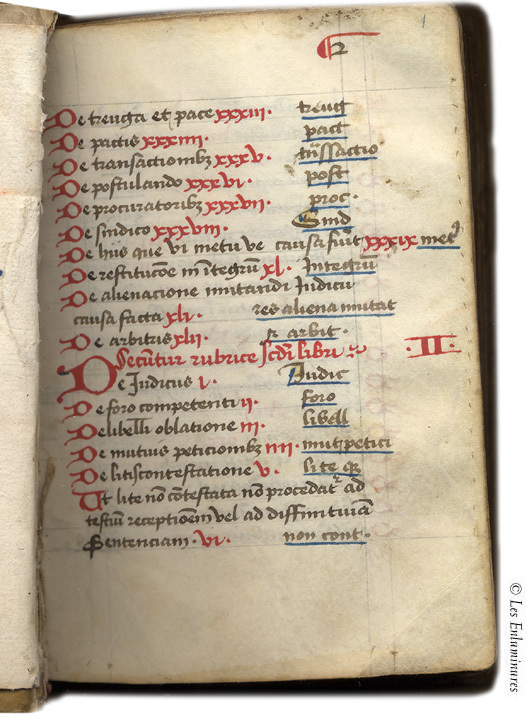 2
De treuga et pace xxxiii. treug
De pactis xxxiiii. pact
De transactionibz xxxv. tnssactio
De postulando xxxvi. post
De procuratoribz xxxvii. proc.
De sindico xxxviii. Sind
De hiis que vi metu ve causa fiut xxxix met9
De restitucoe in integru xl. Integru
De alienacione mutandi Iudicii
causa facta xli. res aliena mutat
De arbitris xlii. arbit.
Secuntur rubrice scdi libri .II.
De Iudiciis i. Iudic
De foro competenti ii. foro
De libelli oblatione iii. libell
De mutuis peticionibz iiii. mut petici
De litis contestatione v. lite
Ut lite no cotestata no procedat ad
testiu receptioem vel ad diffinitiua
Sentenciam. vi. non cont.
© Les Enluminures